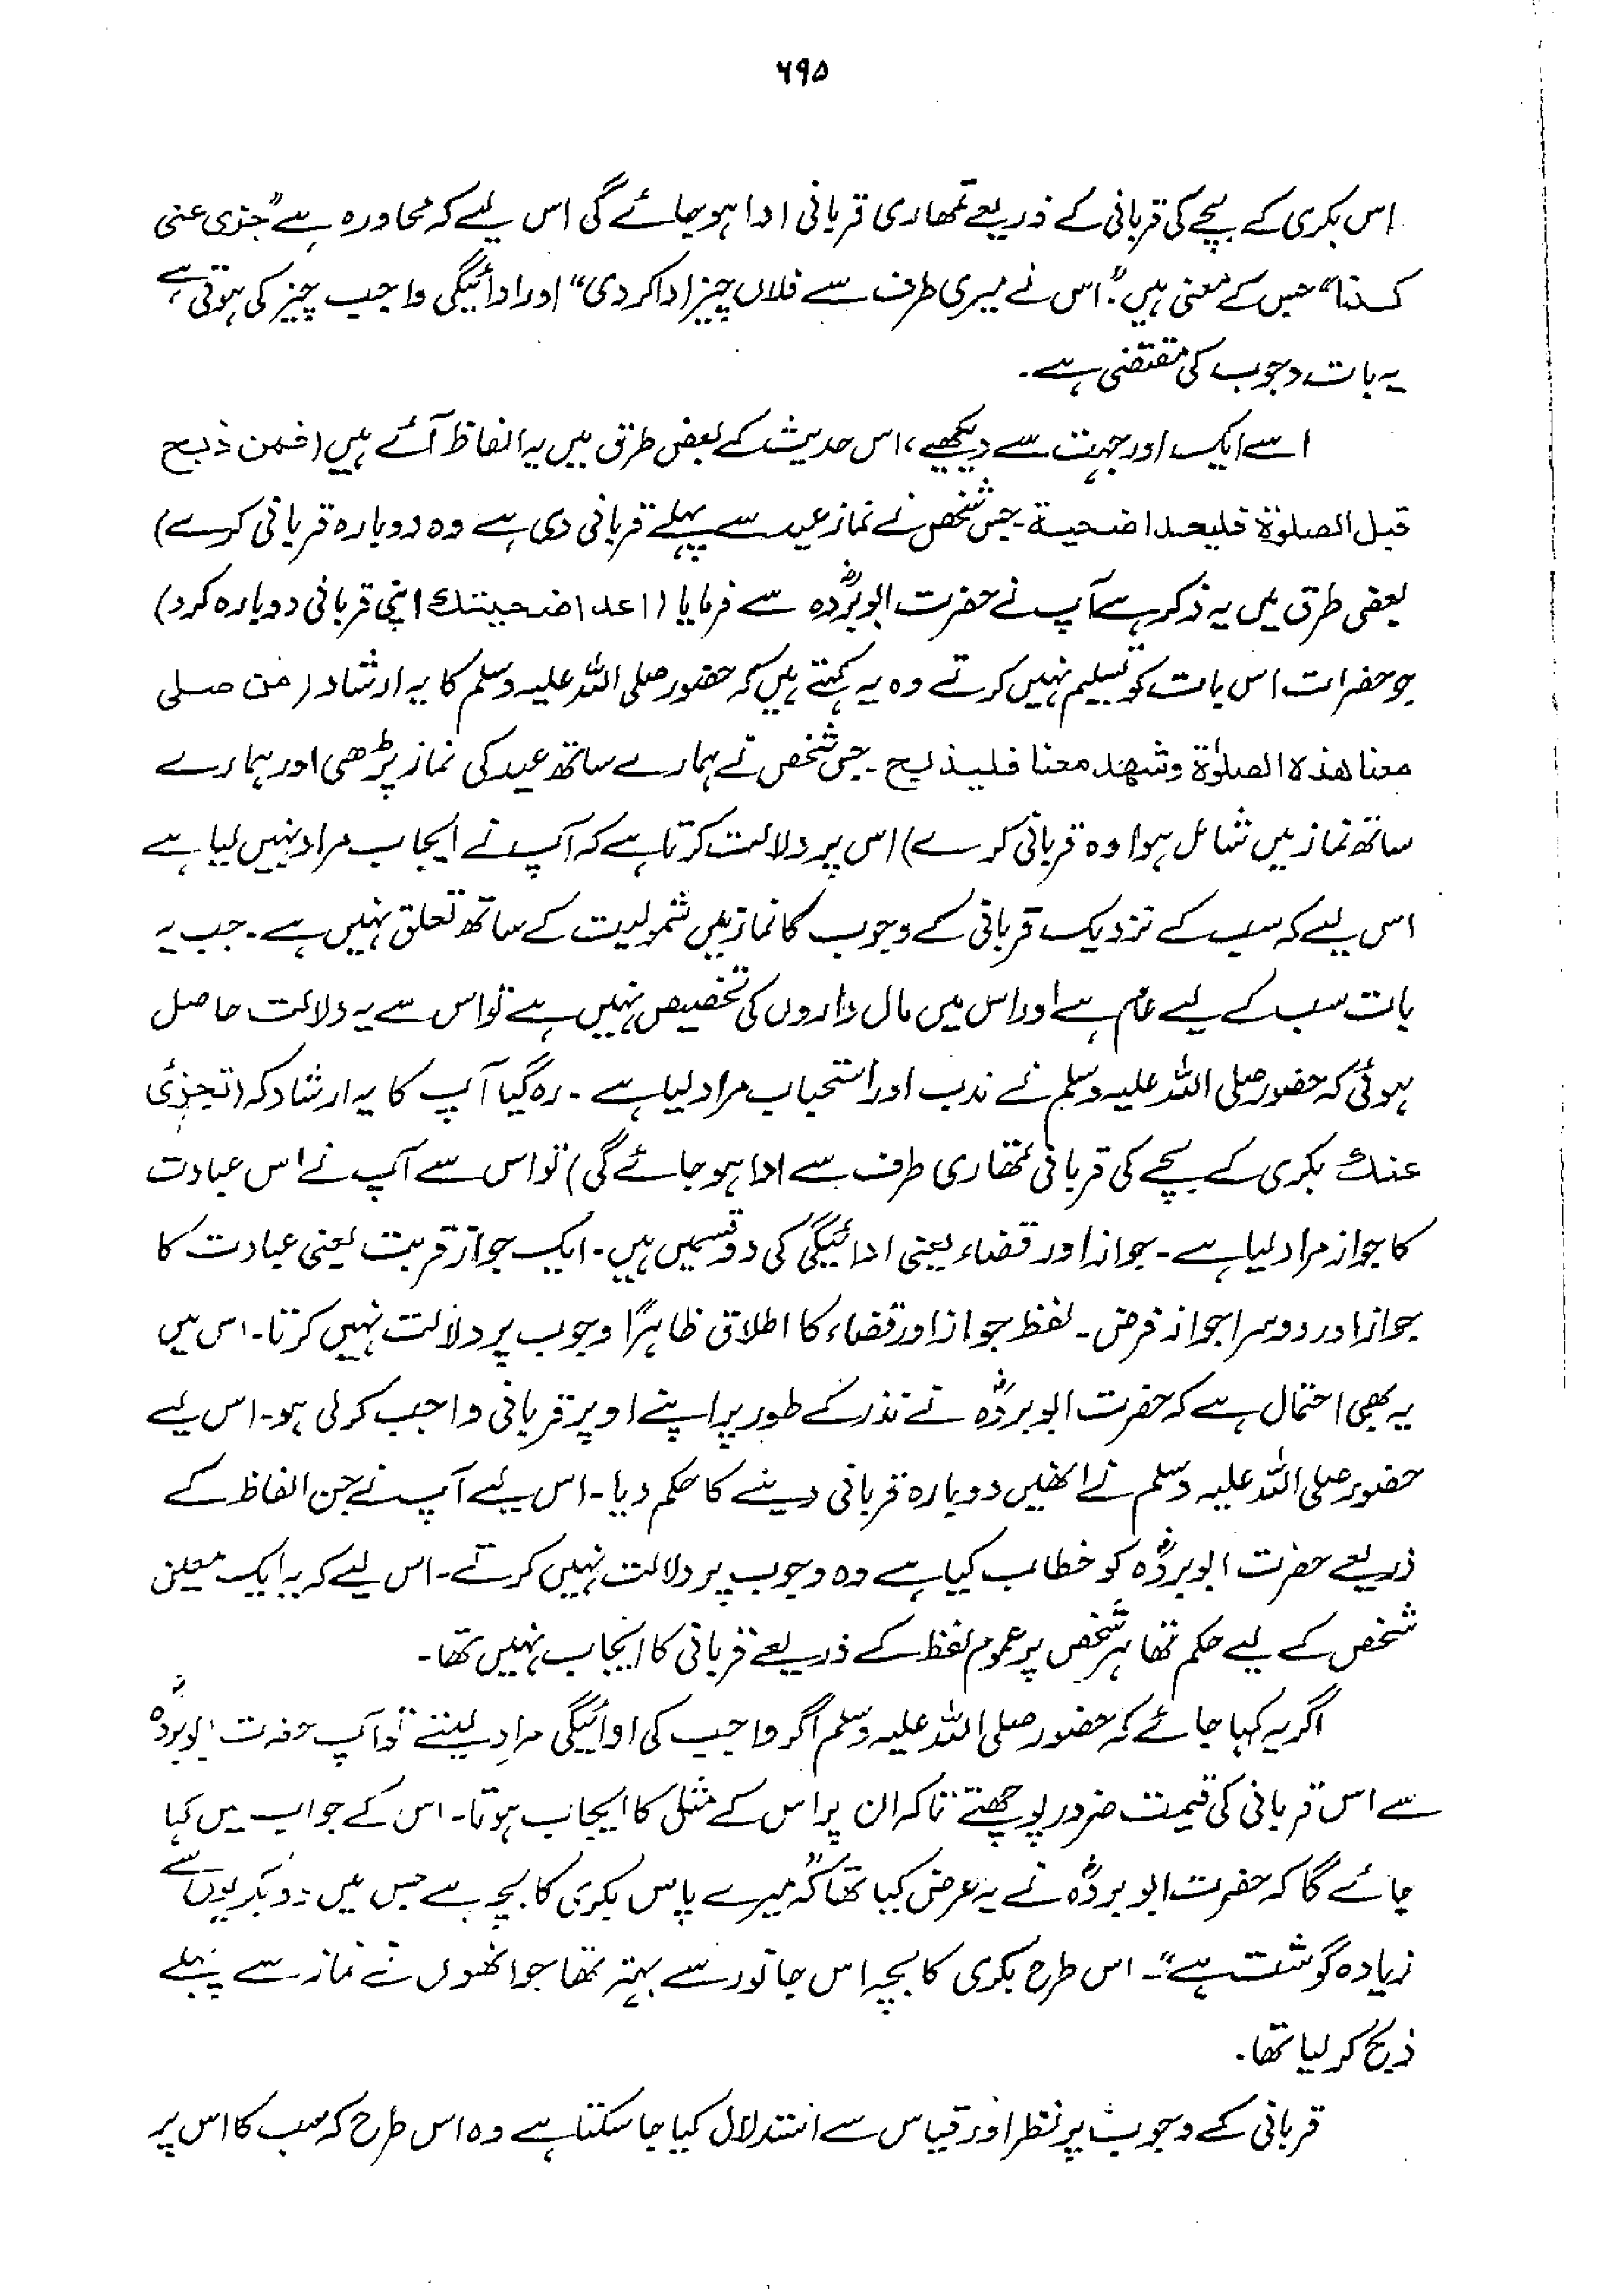 ۶۹۵
اس بکری کے بچے کی قربانی کے ذریعے تمھاری قربانی ادا ہو جائے گی اس لیے کہ محاورہ ہے "جزی عنی
کذا" جس کے معنی ہیں: "اس نے میری طرف سے فلاں چیز ادا کردی" اور ادائیگی واجب چیز کی ہوتی ہے
یہ بات وجوب کی مقتضی ہے۔
اسے ایک اور جہت سے دیکھیے، اس حدیث کے بعض طرق میں یہ الفاظ آئے ہیں (فمن ذبح
قبل الصلوٰۃ فلیعد اضحیۃ۔ جس شخص نے نماز عید سے پہلے قربانی دی ہے وہ دوبارہ قربانی کرے)
بعض طرق میں یہ ذکر ہے آپ نے حضرت ابوبردہؓ سے فرمایا (اعد اضحیتک اپنی قربانی دوبارہ کرو)
جو حضرات اس بات کو تسلیم نہیں کرتے وہ یہ کہتے ہیں کہ حضور صلی اللہ علیہ وسلم کا یہ ارشاد (من صلی
معنا ھذہ الصلوٰۃ وشھد معنا فلیذبح۔ جس شخص نے ہمارے ساتھ عید کی نماز پڑھی اور ہمارے
ساتھ نماز میں شامل ہوا وہ قربانی کرے) اس پر دلالت کرتا ہے کہ آپ نے ایجاب مراد نہیں لیا ہے
اس لیے کہ سب کے نزدیک قربانی کے وجوب کا نماز میں شمولیت کے ساتھ تعلق نہیں ہے۔ جب یہ
بات سب کے لیے عام ہے اور اس میں مال داروں کی تخصیص نہیں ہے تو اس سے یہ دلالت حاصل
ہوئی کہ حضور صلی اللہ علیہ وسلم نے ندب اور استحباب مراد لیا ہے۔ رہ گیا آپ کا یہ ارشاد کہ (تجزئ
عنک بکری کے بچے کی قربانی تمھاری طرف سے ادا ہو جائے گی) تو اس سے آپ نے اس عبادت
کا جواز مراد لیا ہے۔ جواز اور قضاء یعنی ادائیگی کی دو قسمیں ہیں۔ ایک جواز قربت یعنی عبادت کا
جواز اور دوسرا جواز فرض۔ لفظ جواز اور قضاء کا اطلاق ظاہرًا وجوب پر دلالت نہیں کرتا۔ اس میں
یہ بھی احتمال ہے کہ حضرت ابوبردہؓ نے نذر کے طور پر اپنے اوپر قربانی واجب کرلی ہو۔ اس لیے
حضور صلی اللہ علیہ وسلم نے انھیں دوبارہ قربانی دینے کا حکم دیا۔ اس لیے آپ نے جن الفاظ کے
ذریعے حضرت ابوبردہؓ کو خطاب کیا ہے وہ وجوب پر دلالت نہیں کرتے۔ اس لیے کہ یہ ایک معین
شخص کے لیے حکم تھا ہر شخص پر عموم لفظ کے ذریعے قربانی کا ایجاب نہیں تھا۔
اگر یہ کہا جائے کہ حضور صلی اللہ علیہ وسلم اگر واجب کی ادائیگی مراد لیتے تو آپ حضرت ابوبردہؓ
سے اس قربانی کی قیمت ضرور پوچھتے تاکہ ان پر اس کے مثل کا ایجاب ہوتا۔ اس کے جواب میں کہا
جائے گا کہ حضرت ابوبردہؓ نے یہ عرض کیا تھا کہ "میرے پاس بکری کا بچہ ہے جس میں دو بکریوں سے
زیادہ گوشت ہے"۔ اس طرح بکری کا بچہ اس جانور سے بہتر تھا جو انھوں نے نماز سے پہلے
ذبح کر لیا تھا۔
قربانی کے وجوب پر نظر اور قیاس سے استدلال کیا جا سکتا ہے وہ اس طرح کہ سب کا اس پر